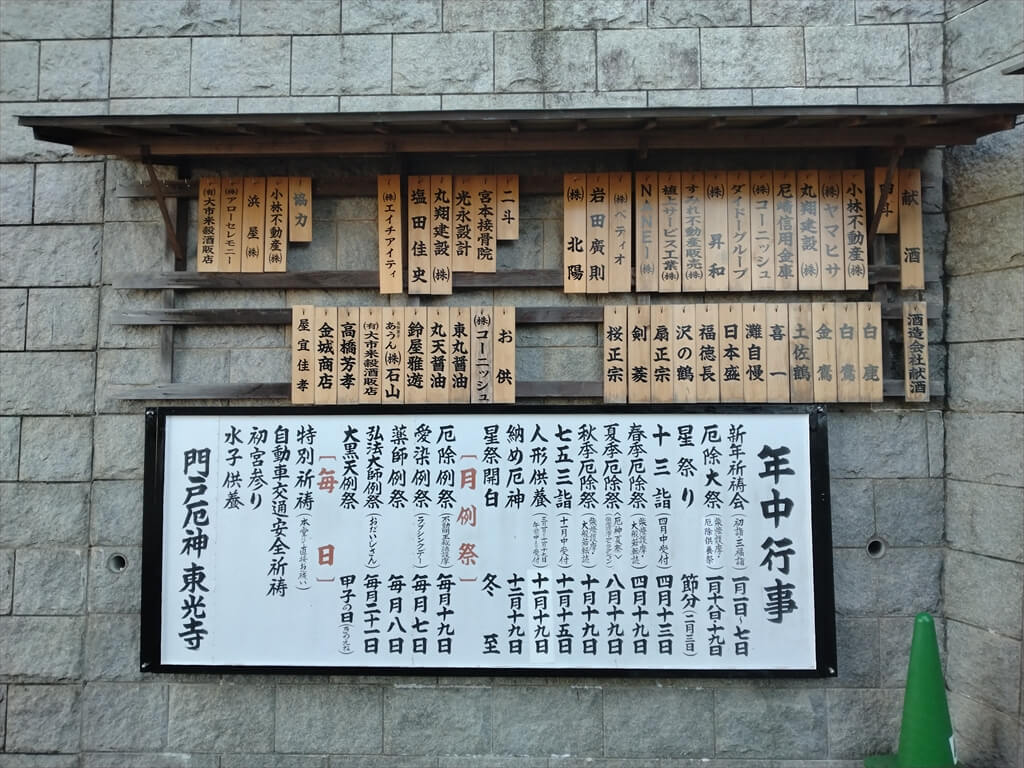 献酒
四斗
小林不動産㈱
㈱ヤマヒサ
丸翔建設㈱
尼崎信用金庫
㈱コーニッシュ
ダイドーグループ
㈱昇和
すみれ不動産販売㈱
植上サービス工業㈱
㈱ベティオ
岩田廣則
㈱北陽
二斗
宮本接骨院
光永設計
丸翔建設㈱
塩田佳史
㈱エイチアイティ
協力
小林不動産㈱
浜屋㈱
㈱アローセレモニー
㈲大市米穀酒販店
酒造会社献酒
白鹿
白鷹
金鷹
土佐鶴
喜一
灘自慢
日本盛
福徳長
沢の鶴
扇正宗
剣菱
桜正宗
お供
㈱コーニッシュ
東丸醤油
丸天醤油
鈴屋雅遊
あうん㈱石山
㈲大市米穀酒販店
高橋芳孝
金城商店
屋宜佳孝
年中行事
新年祈祷会(初詣三福詣) 一月一日〜七日
厄除大祭(柴燈護摩・厄除供養祭) 一月十八日十九日
星祭り 節分(二月三日)
十三詣(四月中受付) 四月十三日
春季厄除祭(柴燈護摩・大般若転読) 四月十九日
夏季厄除祭 八月十九日
秋季厄除祭(柴燈護摩・大般若転読) 十月十九日
七五三詣(十一月中受付) 十一月十五日
人形供養 十一月十九日
納め厄神 十二月十九日
星祭開白 冬至
[月例祭]
厄除例祭(不動明王秘法護摩) 毎月十九日
愛染例祭(ラブシックデー) 毎月七日
薬師例祭 毎月八日
弘法大師例祭(おだいしさん) 毎月二十一日
大黒天例祭 甲子の日(きのえね)
[毎日]
特別祈祷(本堂に直接お願い)
自動車交通安全祈祷
初宮参り
水子供養
門戸厄神 東光寺